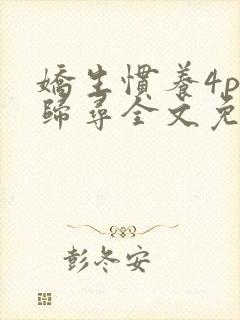 嬌生慣養4p
歸尋全文免
彭冬安